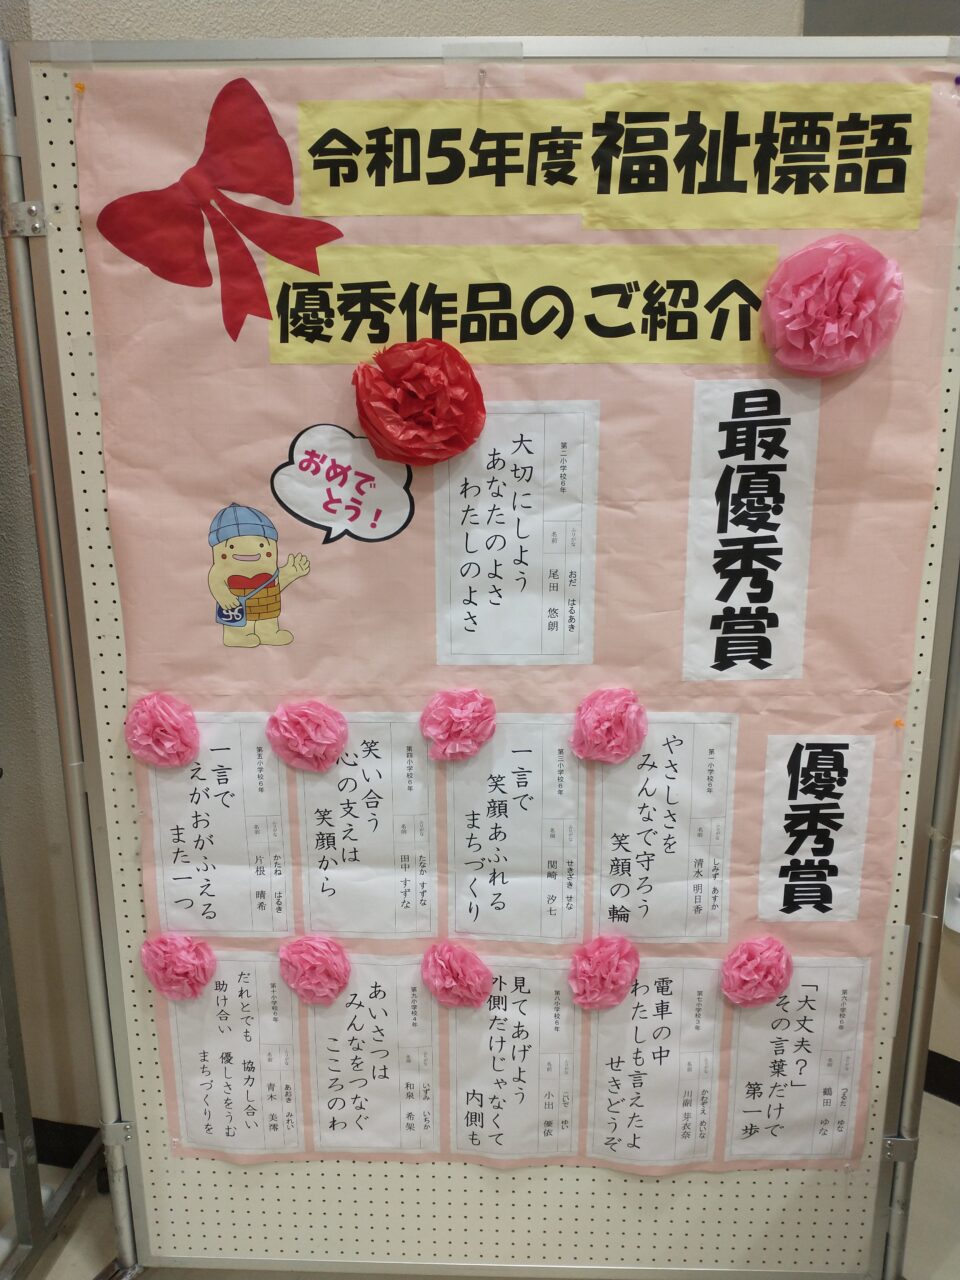 令和5年度 福祉標語
優秀作品のご紹介
最優秀賞
第二小学校6年
ふりがな おだ はるあき
名前 尾田 悠朗
大切にしよう
あなたのよさ
わたしのよさ
おめで
とう！
優秀賞
第一小学校6年
ふりがな しみず あすか
名前 清水 明日香
やさしさを
みんなで守ろう
笑顔の輪
第三小学校6年
ふりがな せきざき せな
名前 関崎 汐七
一言で
笑顔あふれる
まちづくり
第四小学校6年
ふりがな たなか すずな
名前 田中 すずな
笑い合う
心の支えは
笑顔から
第五小学校6年
ふりがな かたね はるき
名前 片根 晴希
一言で
えがおがふえる
また一つ
第六小学校6年
ふりがな つるた ゆな
名前 鶴田 ゆな
「大丈夫？」
その言葉だけで
第一歩
第七小学校3年
ふりがな かわぞえ めいな
名前 川副 芽衣奈
電車の中
わたしも言えたよ
せきどうぞ
第八小学校6年
ふりがな こいで ゆい
名前 小出 優依
見てあげよう
外側だけじゃなくて
内側も
第九小学校4年
ふりがな いずみ いちか
名前 和泉 希架
あいさつは
みんなをつなぐ
こころのわ
第十小学校6年
ふりがな あおき みれい
名前 青木 美澪
だれとでも 協力し合い
助け合い 優しさをうむ
まちづくりを